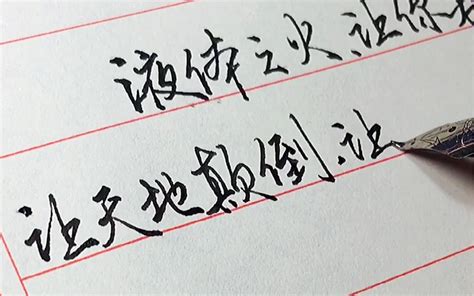 液体之火,让你
让天地颠倒.让